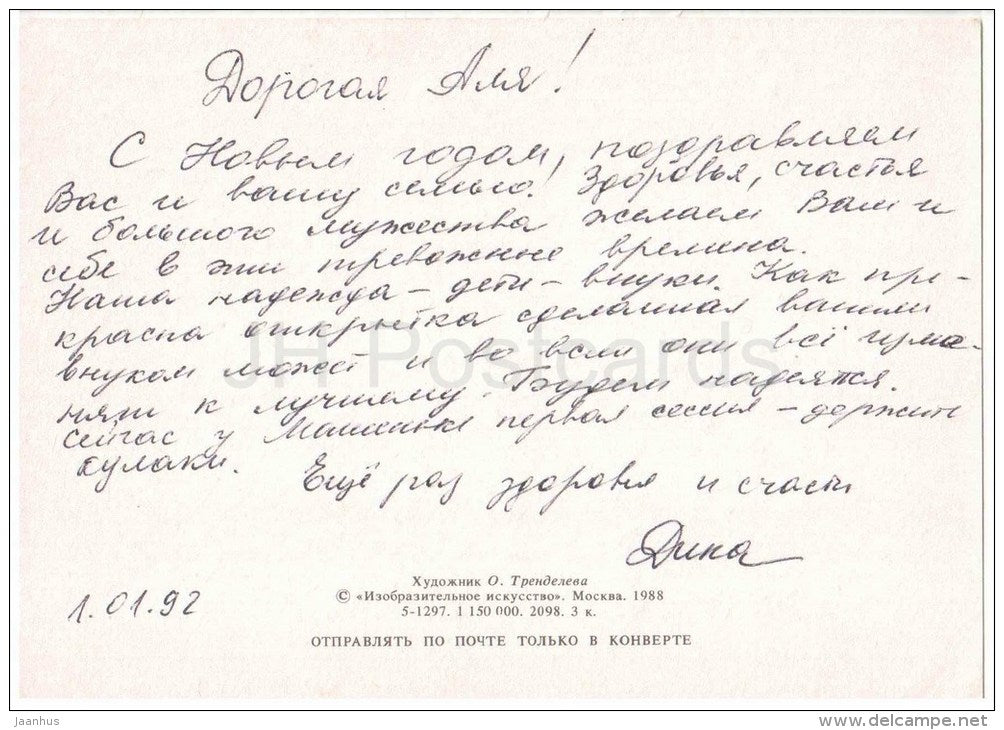 Дорогая Аля!
С Новым годом, поздравляем
Вас и вашу семью! Здоровья, счастья
и большого мужества желаем Вам и
себе в эти тревожные времена.
Наша надежда – дети – внуки. Как пре-
красна открытка сделанная вашим
внуком может и во всём они всё изме-
нят к лучшему. Будем надеятся.
Сейчас у Машеньки первая сессия – держите
кулаки.
Ещё раз здоровья и счасти
1.01.92
Художник О. Тренделева
© «Изобразительное искусство». Москва. 1988
5-1297. 1 150 000. 2098. 3 к.
ОТПРАВЛЯТЬ ПО ПОЧТЕ ТОЛЬКО В КОНВЕРТЕ
JH Postcards
jaanhus
www.delcampe.net